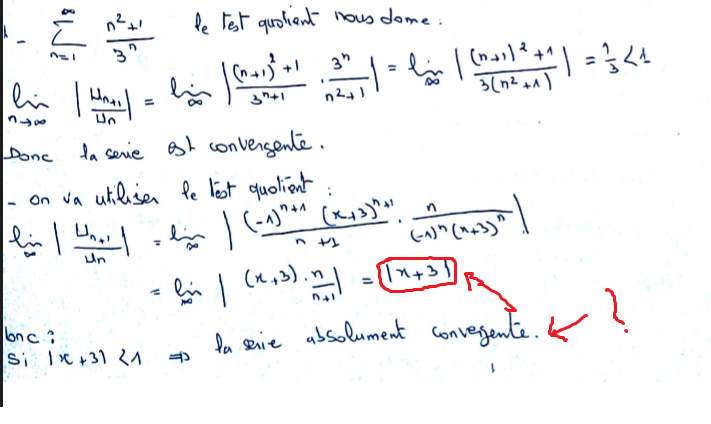 1 - ∑_{n=1}^{∞} (n²+1)/3ⁿ le test quotient nous donne :
lim_{n→∞} |U_{n+1}/U_n| = lim_∞ |((n+1)²+1)/3ⁿ⁺¹ · 3ⁿ/(n²+1)| = lim_∞ |((n+1)²+1)/(3(n²+1))| = 1/3 < 1
Donc la serie est convergente.
- on va utiliser le test quotient :
lim_∞ |U_{n+1}/U_n| = lim_∞ |((-1)ⁿ⁺¹ (x+3)ⁿ⁺¹)/(n+1) · n/((-1)ⁿ(x+3)ⁿ)|
= lim_∞ |(x+3) · n/(n+1)| = |x+3|
Donc : ?
si |x+3| < 1 ⇒ la serie absolument convergente.